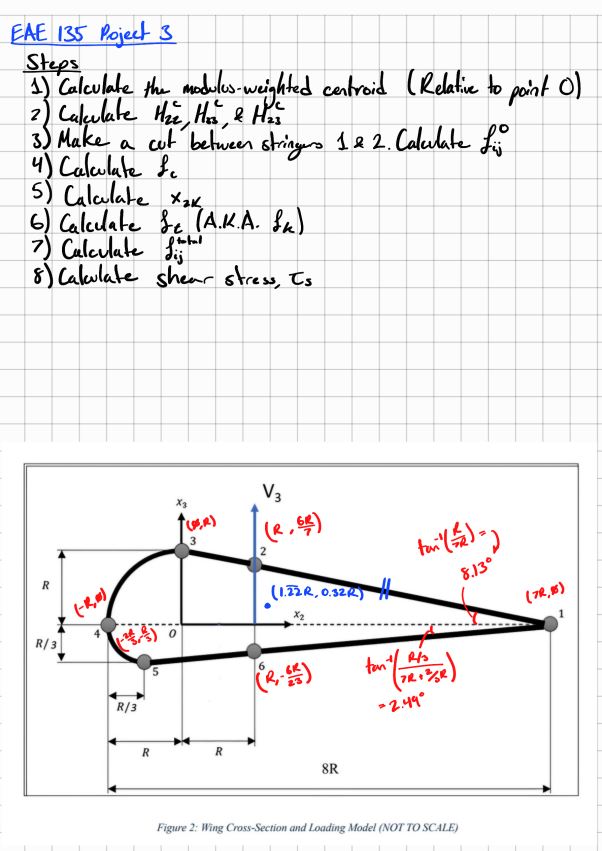 EAE 135 Project 3
Steps
1) Calculate the modulus-weighted centroid (Relative to point O)
2) Calculate H₂₂ᶜ, H₃₃ᶜ, & H₂₃ᶜ
3) Make a cut between stringers 1 & 2. Calculate fᵢⱼ⁰
4) Calculate f꜀
5) Calculate x₂ₖ
6) Calculate fₜ (A.K.A. fₖ)
7) Calculate fᵢⱼᵗᵒᵗᵃˡ
8) Calculate shear stress, τₛ
V₃
x₃
(Ø,R)
3
2
(R, 6R/7)
tan⁻¹(R/7R) =
8.13°
R
(-R,Ø)
(1.22R, 0.32R)
(7R,Ø)
x₂
1
4
O
(-2R/3, -R/3)
R/3
5
6
(R, -6R/23)
tan⁻¹(R/3 / 7R+2/3R)
= 2.49°
R/3
R
R
8R
Figure 2: Wing Cross-Section and Loading Model (NOT TO SCALE)